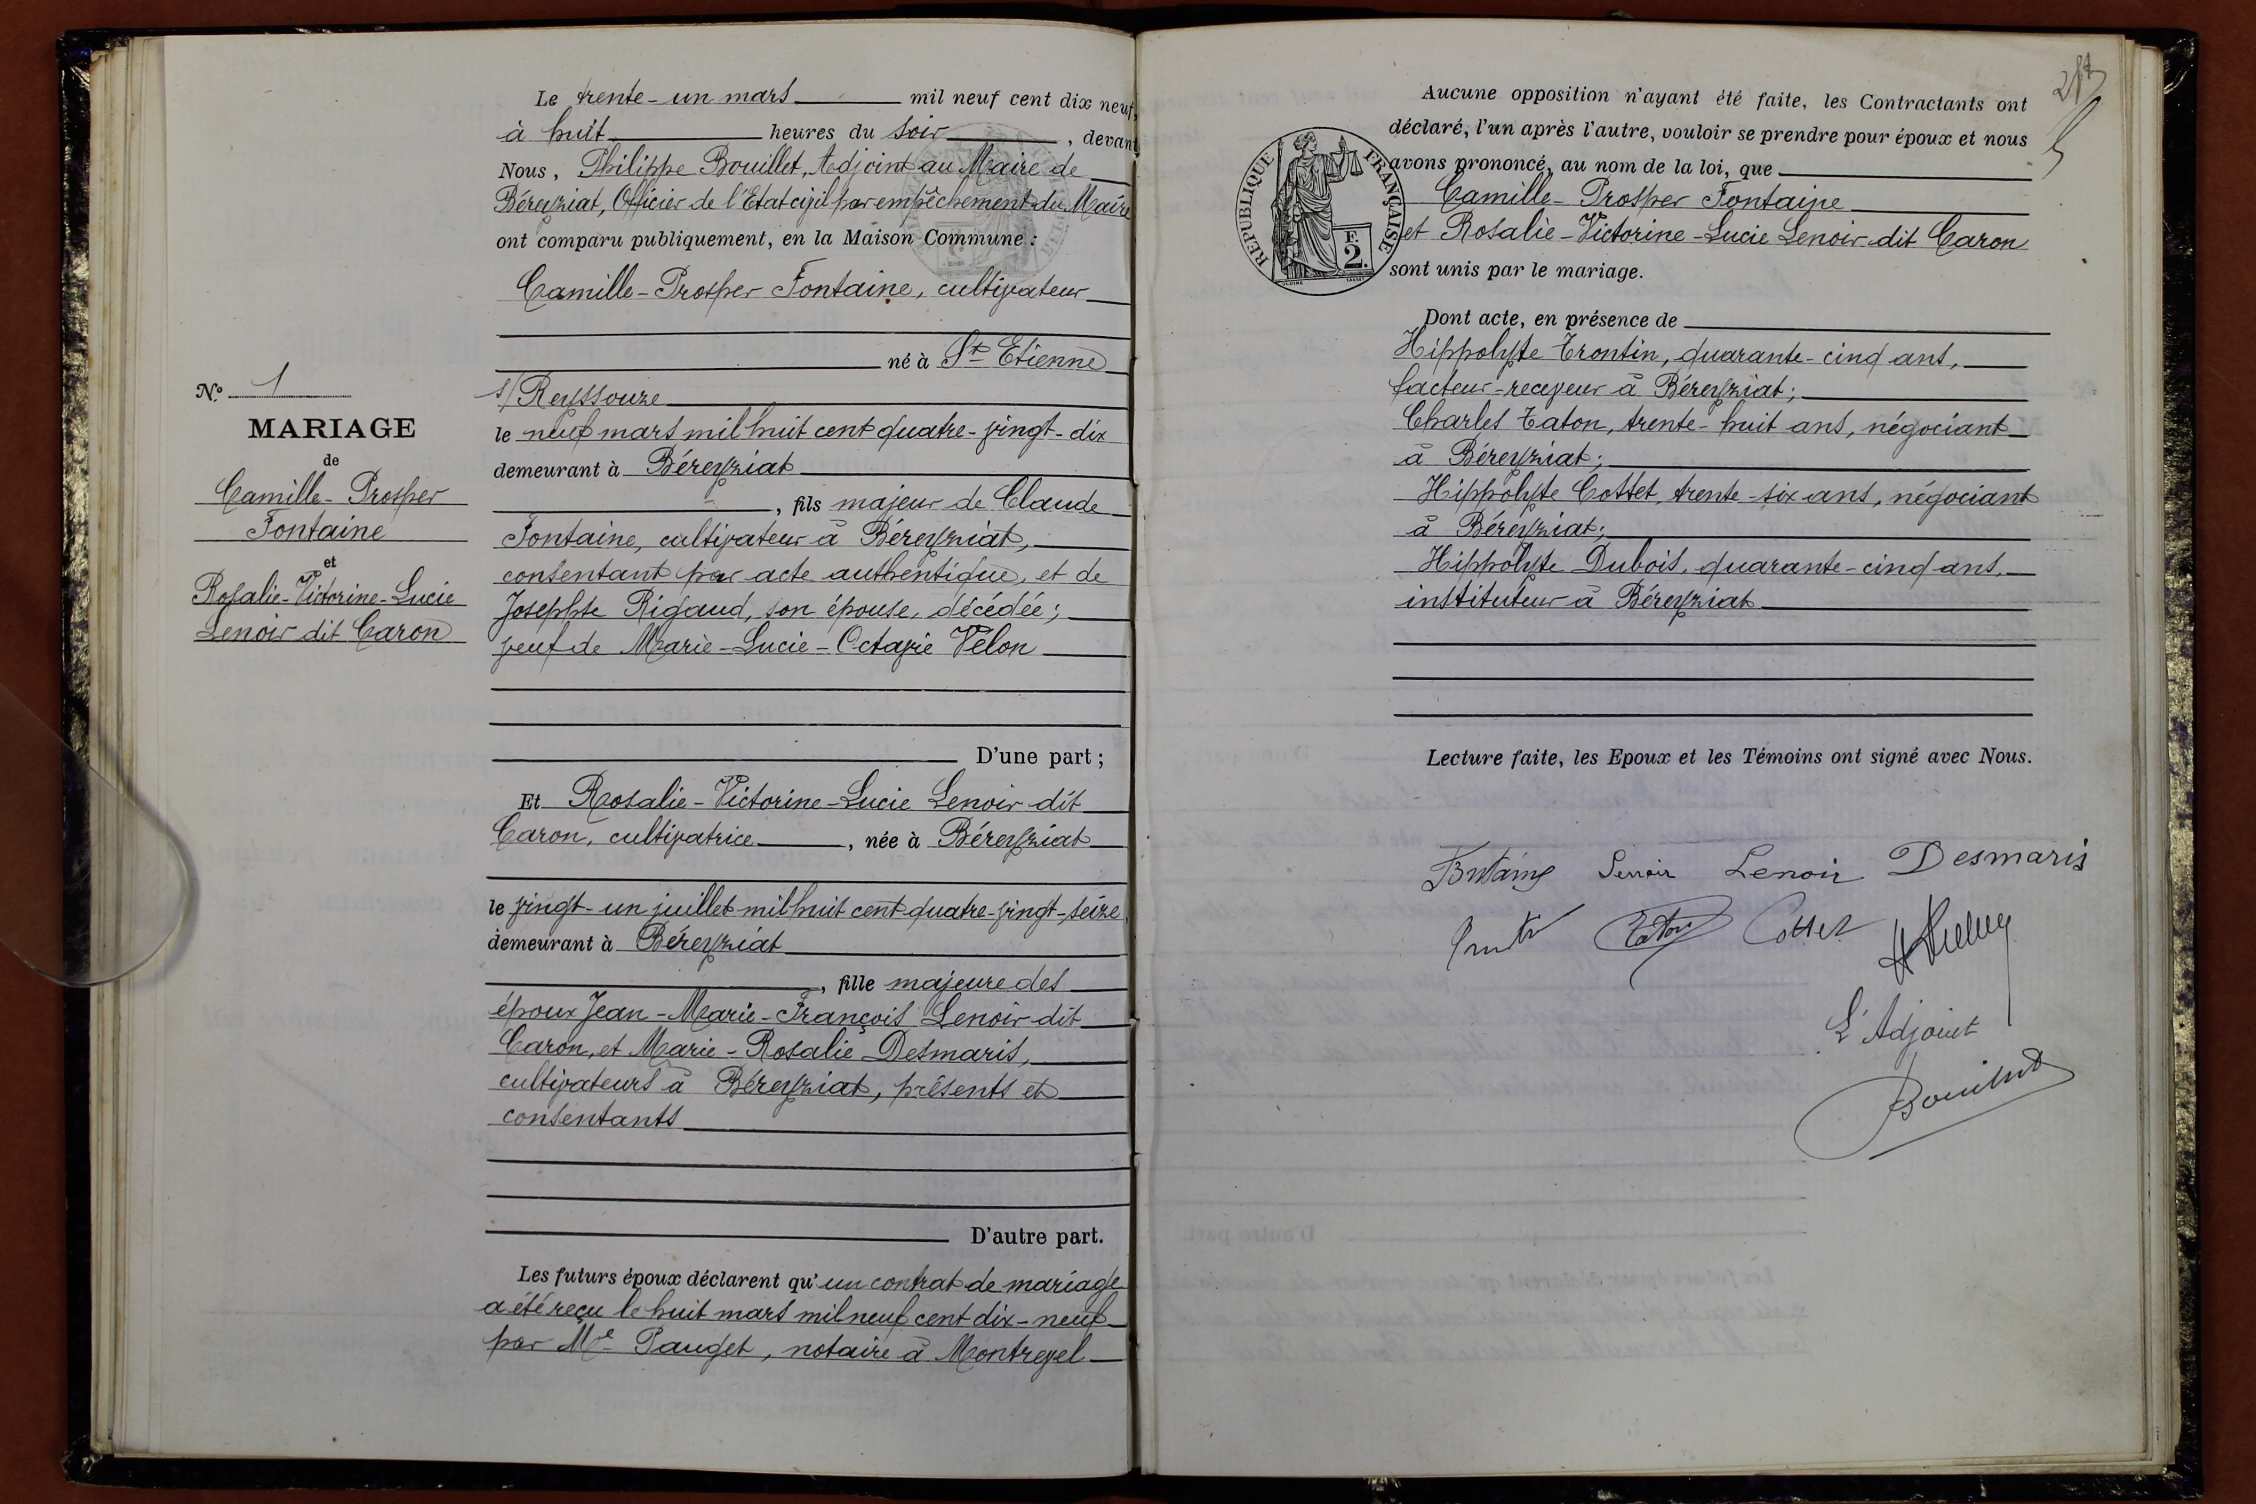 Le trente-un mars mil neuf cent dix neuf,
à huit heures du soir, devant
Nous, Philippe Bouillet, Adjoint au Maire de
Béreyziat, Officier de l'Etat civil par empêchement du Maire
ont comparu publiquement, en la Maison Commune :
Camille-Prosper Fontaine, cultivateur
né à St Etienne
s/ Reyssouze
le neuf mars mil huit cent quatre-vingt-dix
demeurant à Béreyziat
, fils majeur de Claude
Fontaine, cultivateur à Béreyziat,
consentant par acte authentique, et de
Josephte Rigaud, son épouse, décédée ;
veuf de Marie-Lucie-Octavie Velon
D'une part ;
Et Rosalie-Victorine-Lucie Lenoir dit
Caron, cultivatrice, née à Béreyziat
le vingt-un juillet mil huit cent quatre-vingt-seize,
demeurant à Béreyziat
, fille majeure des
époux Jean-Marie-François Lenoir dit
Caron, et Marie-Rosalie Desmaris,
cultivateurs à Béreyziat, présents et
consentants
D'autre part.
Les futurs époux déclarent qu'un contrat de mariage
a été reçu le huit mars mil neuf cent dix-neuf
par Me Pauget, notaire à Montrevel
No. 1
MARIAGE
de
Camille-Prosper
Fontaine
et
Rosalie-Victorine-Lucie
Lenoir dit Caron
Aucune opposition n'ayant été faite, les Contractants ont
déclaré, l'un après l'autre, vouloir se prendre pour époux et nous
avons prononcé, au nom de la loi, que
Camille-Prosper Fontaine
et Rosalie-Victorine-Lucie Lenoir dit Caron
sont unis par le mariage.
RÉPUBLIQUE FRANÇAISE
F.
2.
Dont acte, en présence de
Hippolyte Trontin, quarante-cinq ans,
facteur-receveur à Béreyziat ;
Charles Taton, trente-huit ans, négociant
à Béreyziat ;
Hippolyte Cottet, trente-six ans, négociant
à Béreyziat ;
Hippolyte Dubois, quarante-cinq ans,
instituteur à Béreyziat
Lecture faite, les Epoux et les Témoins ont signé avec Nous.
Fontaine Lenoir Lenoir Desmaris
Taton Cottet
L'Adjoint
Bouillet